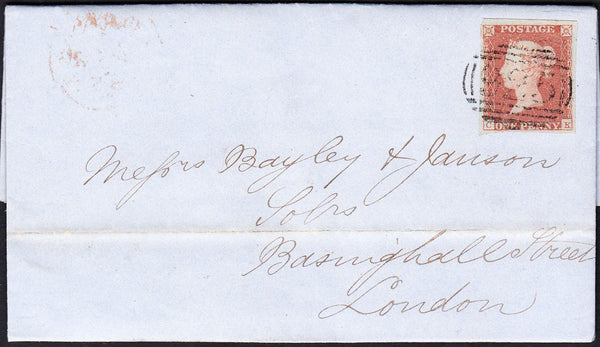 POSTAGE
C ONE PENNY K
Messrs Bayley & Janson
Solrs
Basinghall Street
London